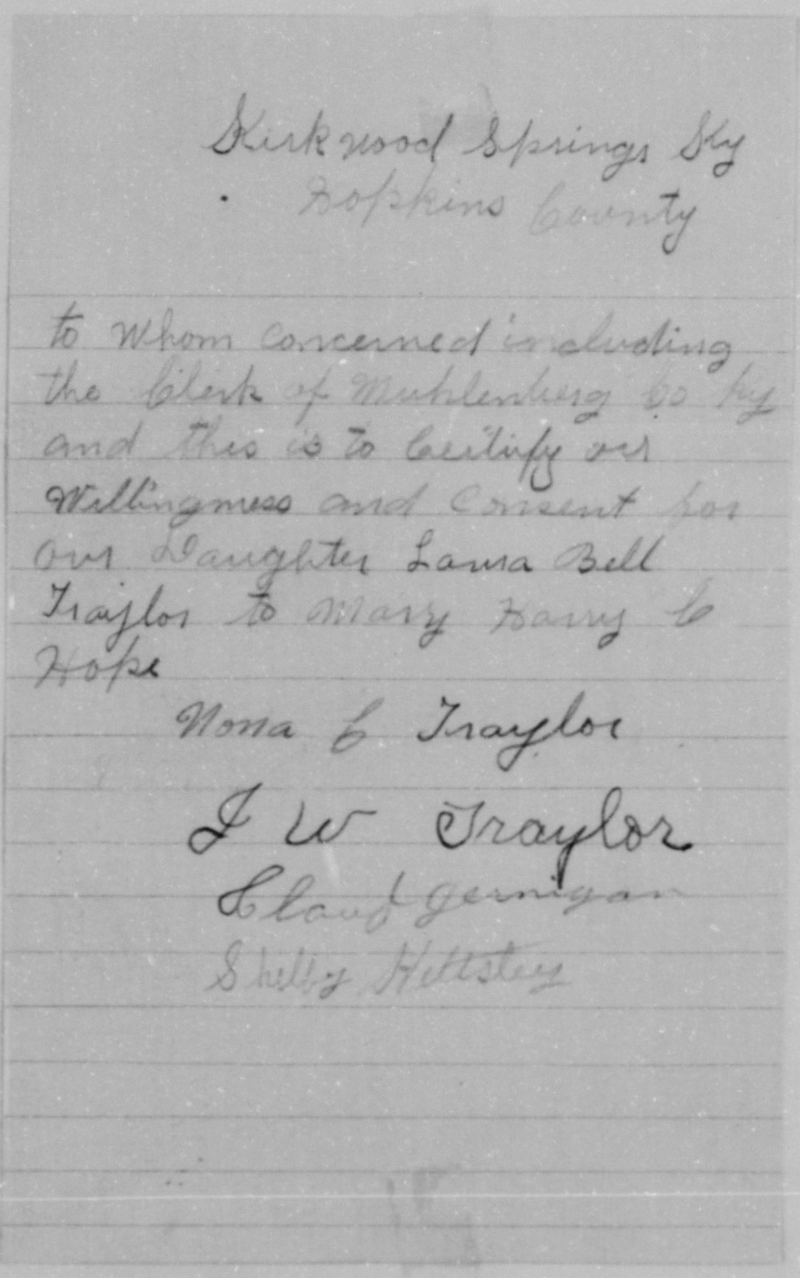 Kirkwood Springs Ky
Hopkins County
to Whom Concerned including
the Clerk of Muhlenberg Co Ky
and this is to Certify our
Willingness and Consent for
our Daughter Laura Bell
Traylor to Mary Harry C
Hope
Nona C Traylor
J W Traylor
Claud Jernigan
Shelby